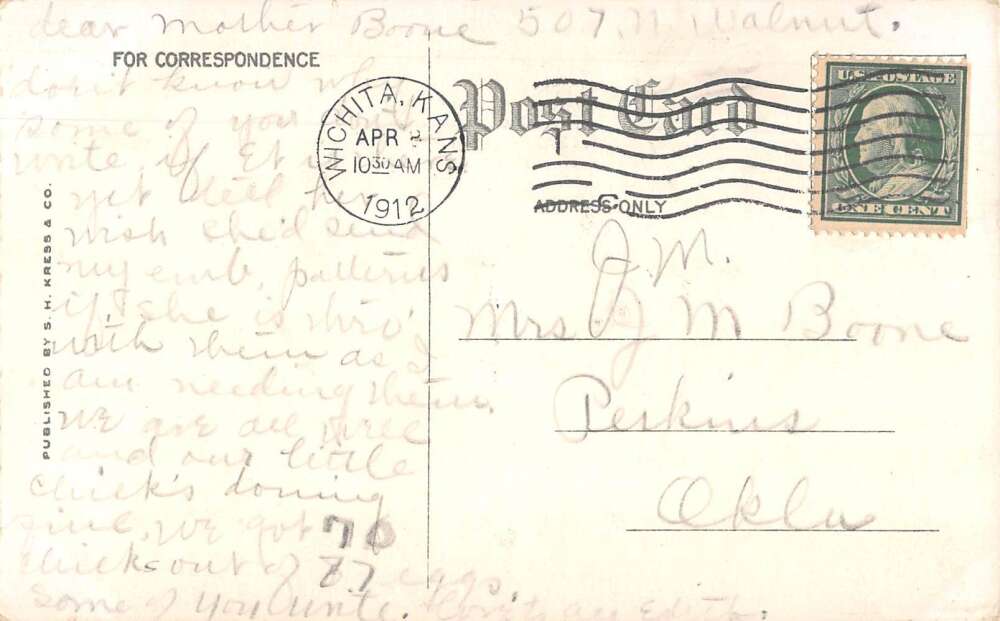 dear Mother Boone 507. N Walnut.
FOR CORRESPONDENCE
don't know why
some of you don't
write. if Et is
yet tell her I
wish she'd send
my emb, patterns
if she is thro'
with them as I
am needing them.
we are all well
and our little
chick's doning
fine, we got 70
chicks out of 77 eggs,
some of you write. Love to all Edith.
PUBLISHED BY S. H. KRESS & CO.
WICHITA, KANS
APR
10 30 AM
1912
Post Card
ADDRESS ONLY
U.S. POSTAGE
ONE CENT
J. M.
Mrs J M Boone
Perkins
Okla